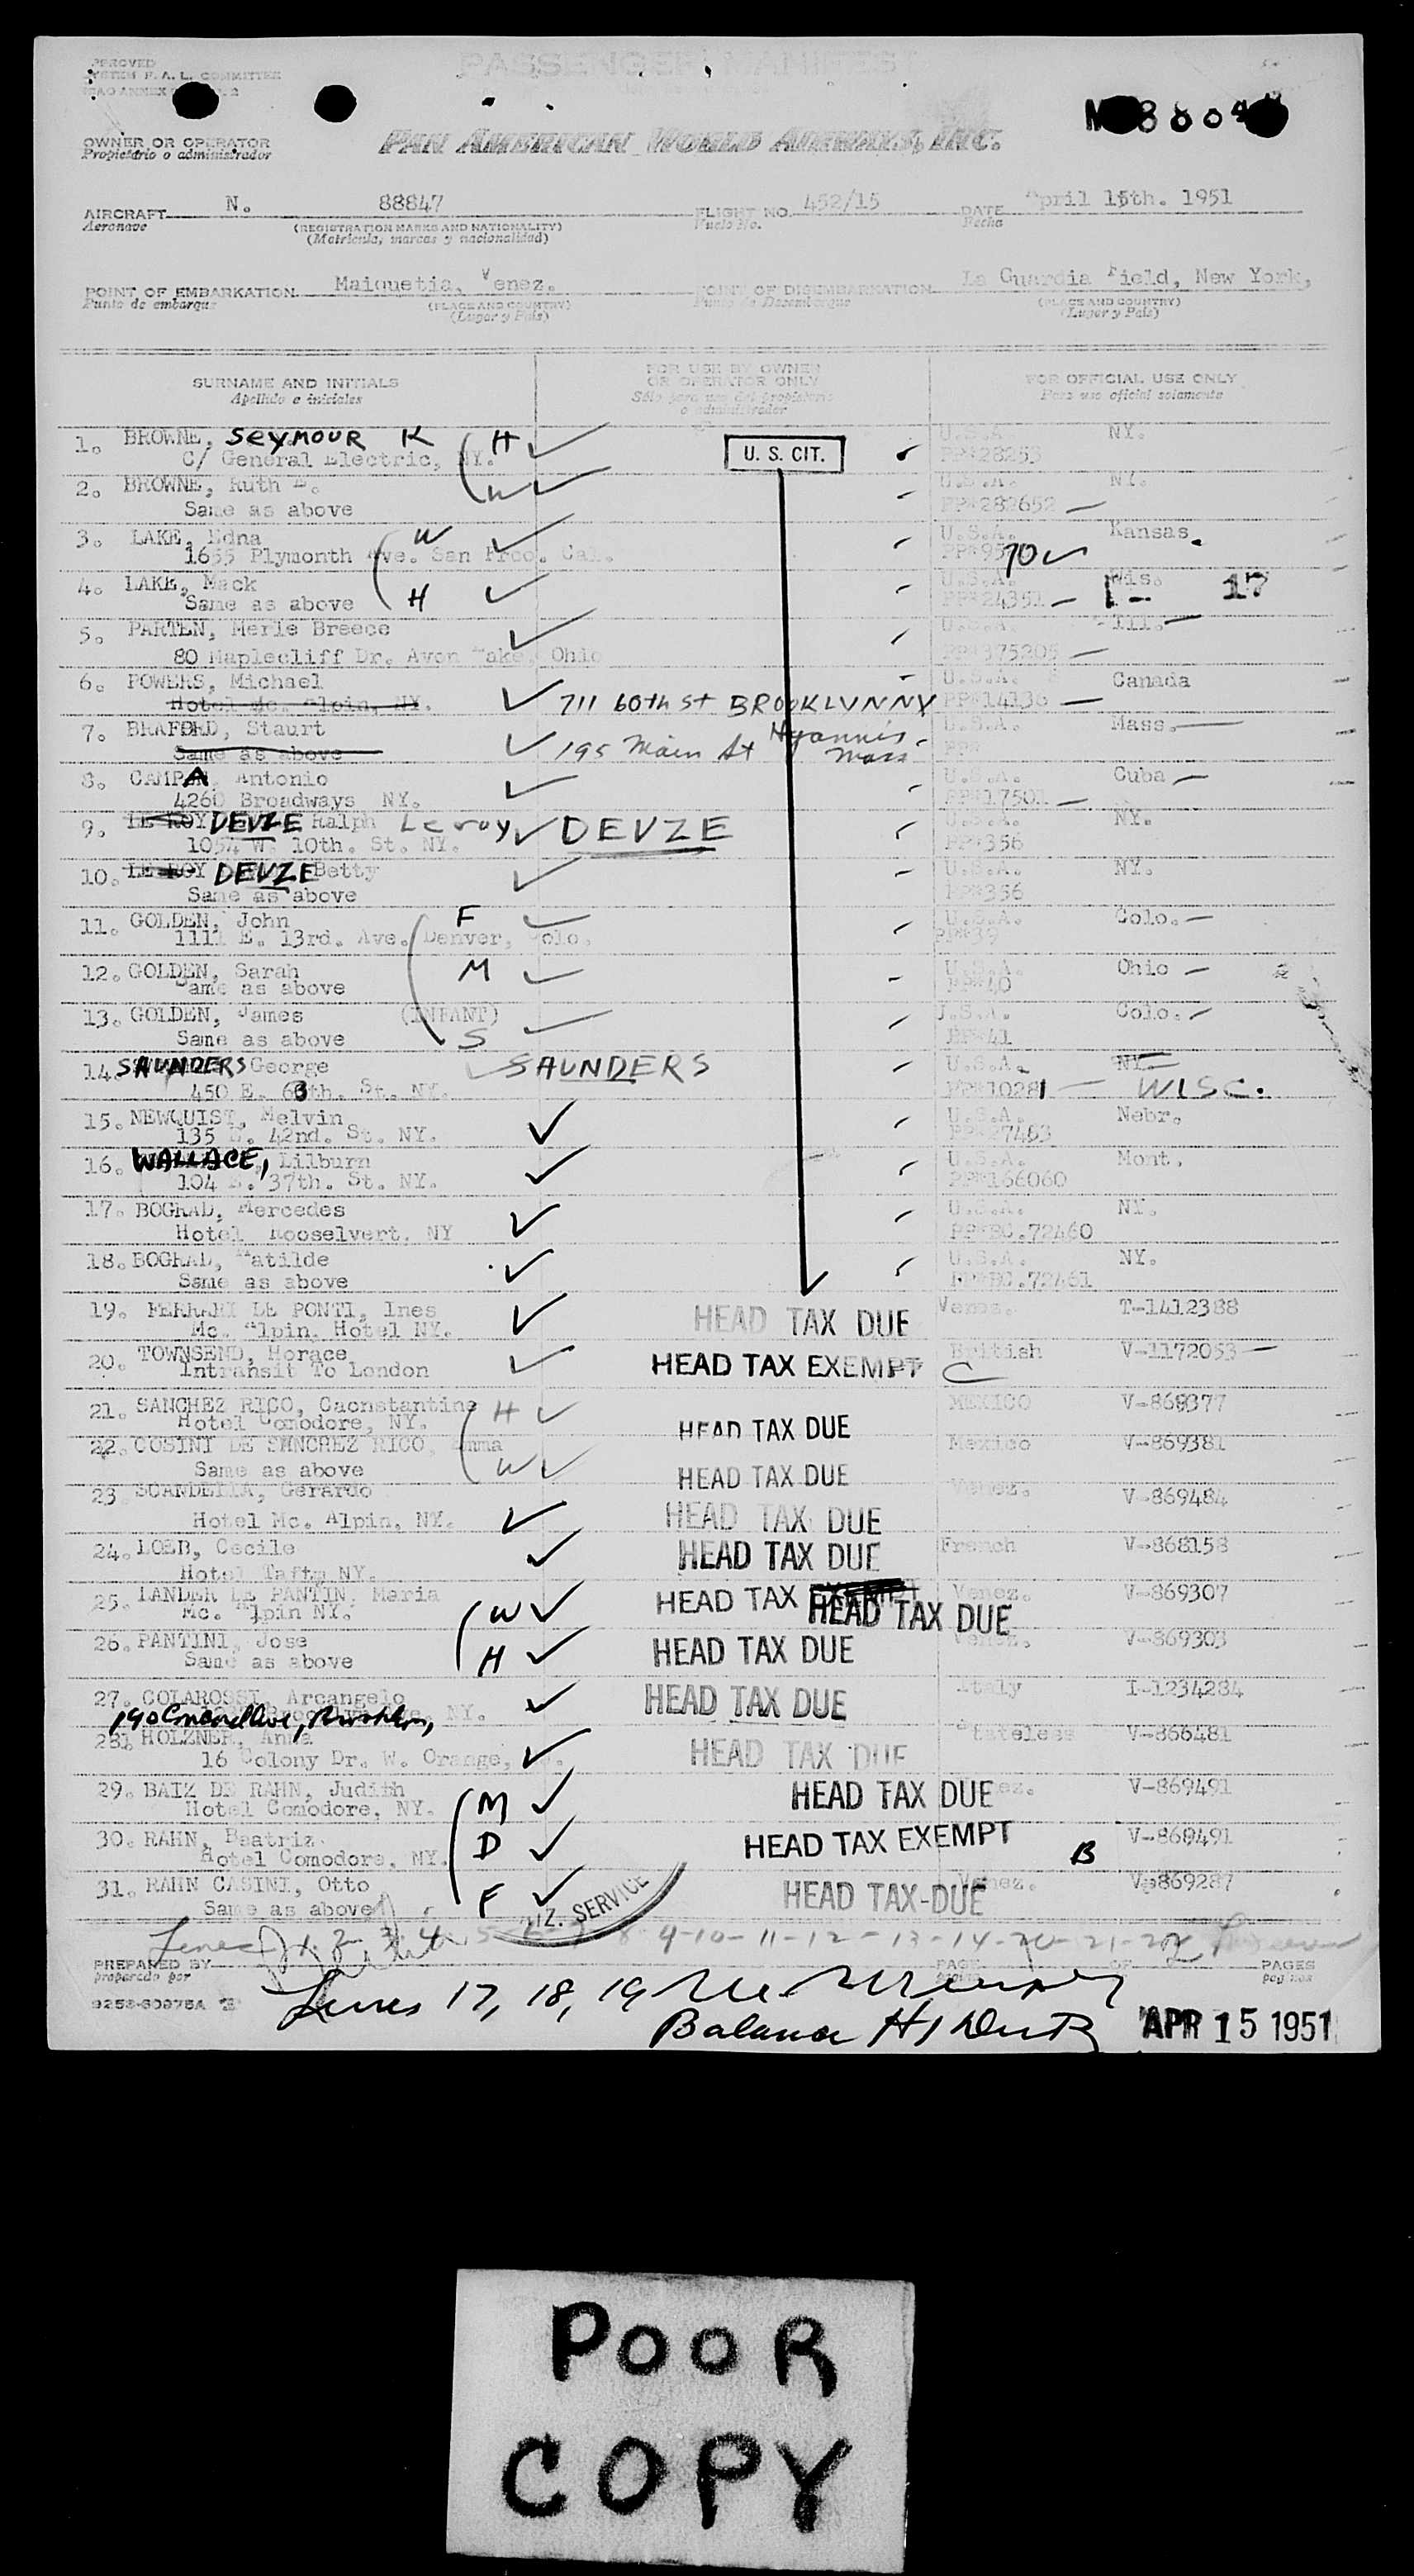 PROVED
SYSTEM F. A. L. COMMITTEE
ICAO ANNEX
PASSENGER MANIFEST
OWNER OR OPERATOR
Propietário o administrador
PAN AMERICAN WORLD AIRWAYS, INC.
AIRCRAFT N. 88847 FLIGHT NO. 452/15 DATE April 15th. 1951
Aeronave (REGISTRATION MARKS AND NATIONALITY) Vuelo No. Fecha
(Matrícula, marcas y nacionalidad)
POINT OF EMBARKATION Maiquetia, Venez. POINT OF DISEMBARKATION La Guardia Field, New York,
Punto de embarque (PLACE AND COUNTRY) Punto de Desembarque (PLACE AND COUNTRY)
(Lugar y País) (Lugar y País)
SURNAME AND INITIALS FOR USE BY OWNER OR OPERATOR ONLY FOR OFFICIAL USE ONLY
Apellido e iniciales Sólo para uso del propietario o administrador Para uso oficial solamente
1. BROWNE, SEYMOUR K H U. S. CIT. U.S.A. NY.
C/ General Electric, NY. PP#28253
2. BROWNE, Ruth W U.S.A. NY.
Same as above PP#282652
3. LAKE, Edna W U.S.A. Kansas.
1655 Plymonth Ave. San Frco. Cal. 70
4. LAKE, Mack U.S.A. Wis. 17
Same as above H PP#24351
5. PARTEN, Merle Breece U.S.A. Ill.
80 Maplecliff Dr. Avon Lake, Ohio PP#375205
6. POWERS, Michael U.S.A. Canada
Hotel Mc. Alpin, NY. 711 60th St BROOKLYN NY PP#14136
7. BRAFORD, Staurt U.S.A. Mass.
Same as above 195 Main St Hyannis Mass PP#
8. CAMPA, Antonio U.S.A. Cuba
4260 Broadways NY. PP#17501
9. LE ROY DEVZE Ralph Leroy DEVZE U.S.A. NY.
1054 W. 10th. St. NY. PP#356
10. LE ROY DEVZE Betty U.S.A. NY.
Same as above PP#356
11. GOLDEN, John F U.S.A. Colo.
1111 E. 13rd. Ave. Denver, Colo. PP#39
12. GOLDEN, Sarah M U.S.A. Ohio
Same as above PP#40
13. GOLDEN, James (INFANT) U.S.A. Colo.
Same as above S PP#41
14. SAUNDERS George SAUNDERS U.S.A. NY
450 E. 63th. St. NY. PP#10281 WISC.
15. NEWQUIST, Melvin U.S.A. Nebr.
135 E. 42nd. St. NY. 7463
16. WALLACE, Lilburn U.S.A. Mont.
104 E. 37th. St. NY. PP#166060
17. BOGRAD, Mercedes U.S.A. NY.
Hotel Rooselvert, NY PP#BC.72460
18. BOGRAD, Matilde U.S.A. NY.
Same as above PP#BC.72461
19. FERRARI DE PONTI, Ines HEAD TAX DUE Venez. T-1412388
Mc. Alpin, Hotel NY.
20. TOWNSEND, Horace HEAD TAX EXEMPT British V-1172053
Intransit To London C
21. SANCHEZ RICO, Caonstantino H HEAD TAX DUE MEXICO V-869377
Hotel Comodore, NY.
22. COSINI DE SANCHEZ RICO, Emma Mexico V-869381
Same as above W HEAD TAX DUE
23. SCANDELLA, Gerardo Venez. V-869484
Hotel Mc. Alpin, NY. HEAD TAX DUE
24. LOEB, Cecile HEAD TAX DUE French V-868158
Hotel Taft, NY.
25. LANDER DE PANTIN, Maria W HEAD TAX EXEMPT HEAD TAX DUE Venez. V-869307
Mc. Alpin NY.
26. PANTINI, Jose HEAD TAX DUE Venez. V-869303
Same as above H
27. COLAROSSI, Arcangelo HEAD TAX DUE Italy I-1234284
190 Concord Ave, Brooklyn, NY.
28. HOLZNER, Anna HEAD TAX DUE Stateless V-866481
16 Colony Dr. W. Orange,
29. BAIZ DE RAHN, Judith M HEAD TAX DUE Venez. V-869491
Hotel Comodore, NY.
30. RAHN, Beatriz D HEAD TAX EXEMPT B V-869491
Hotel Comodore, NY.
31. RAHN CASINI, Otto F HEAD TAX-DUE Venez. V-869287
Same as above
Z. SERVICE
Lines 1, 2, 3, 4, 5 8-9-10-11-12-13-14-20-21-22
PREPARED BY PAGE OF 2 PAGES
preparado por paginas
9253-60975A
Lines 17, 18, 19
Balance
APR 15 1951
POOR
COPY